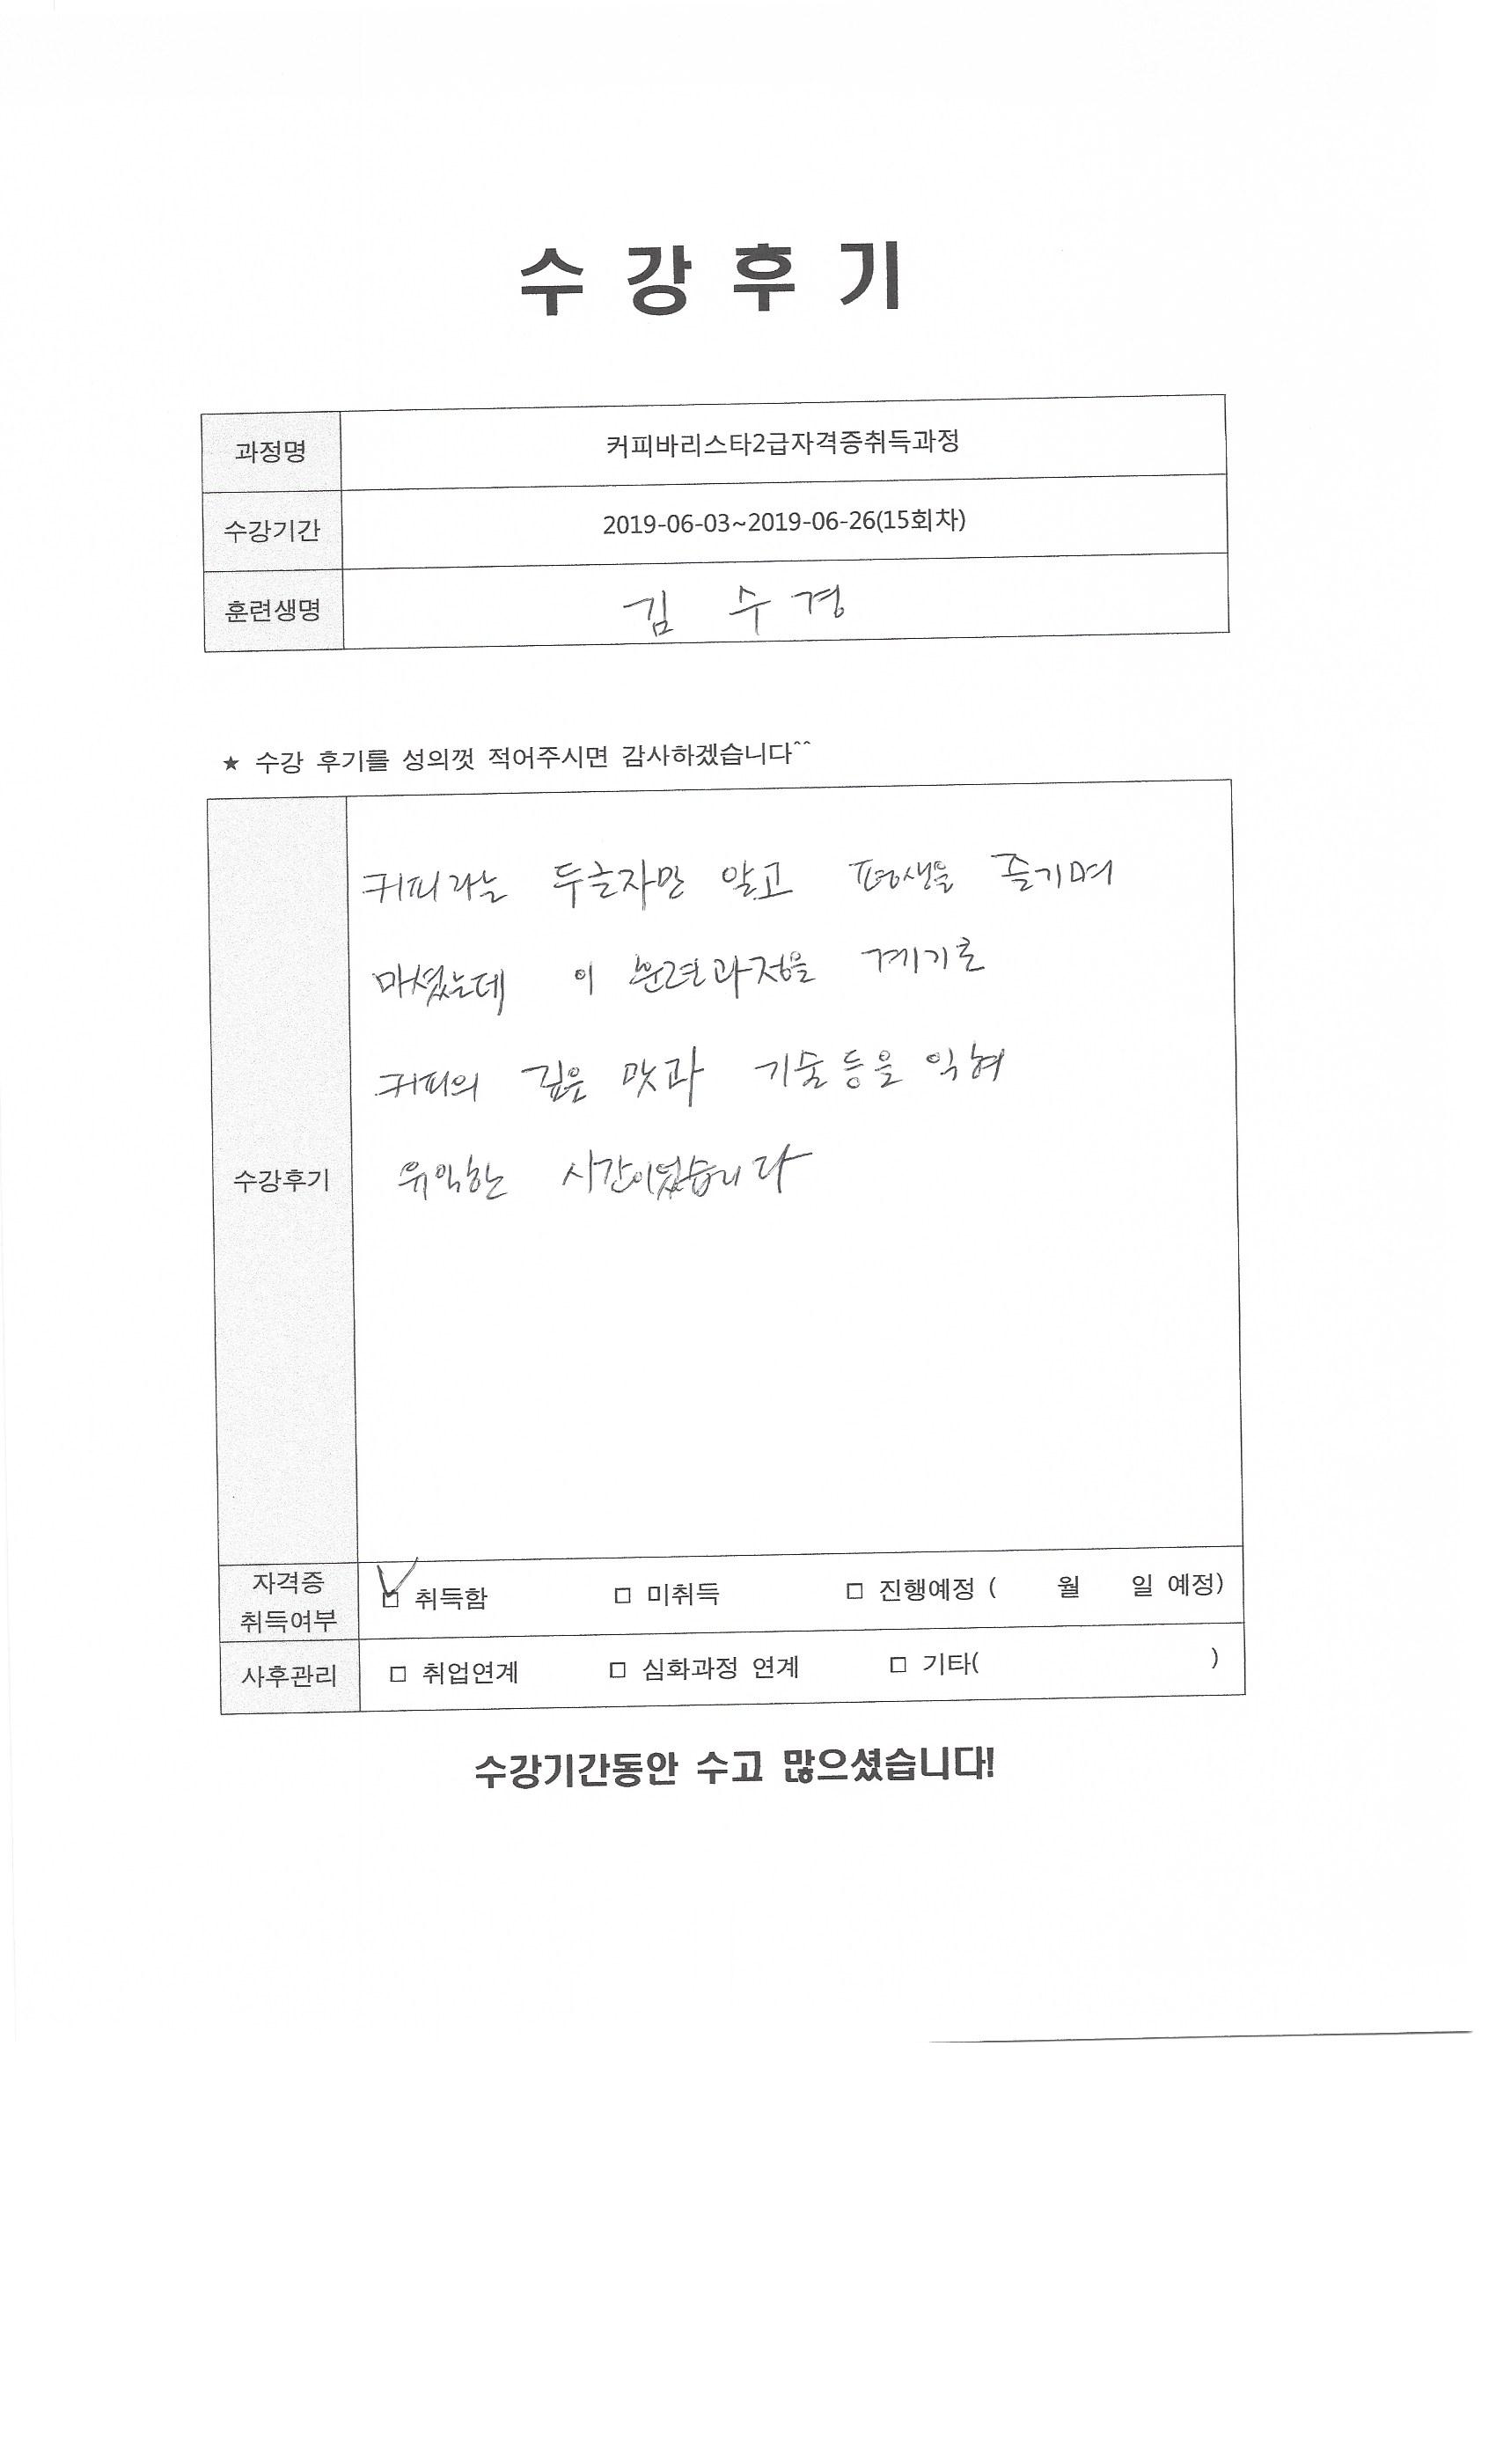 수 강 후 기
과정명 커피바리스타2급자격증취득과정
수강기간 2019-06-03~2019-06-26(15회차)
훈련생명 김 수경
★ 수강 후기를 성의껏 적어주시면 감사하겠습니다^^
커피라는 두글자만 알고 평생을 즐기며
마셨는데 이 훈련과정을 계기로
커피의 깊은 맛과 기술등을 익혀
수강후기 유익한 시간이었습니다
자격증
취득여부 ☑ 취득함 □ 미취득 □ 진행예정 ( 월 일 예정)
사후관리 □ 취업연계 □ 심화과정 연계 □ 기타( )
수강기간동안 수고 많으셨습니다!